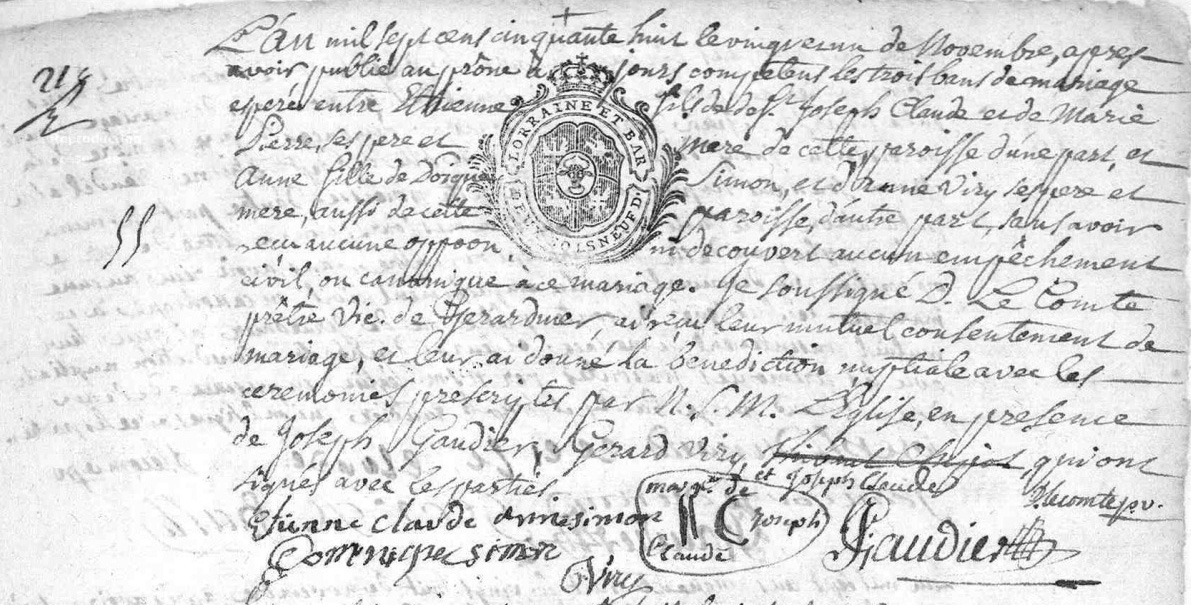 L'an mil sept cens cinquante huit le vingt et un de Novembre, apres
avoir publié au prône à jours competens les trois bans de mariage
esperé entre Etienne fils de def. Sr. Joseph Claude et de Marie
Pierre, ses pere et mere de cette paroisse d'une part, et
Anne fille de Dominique Simon, et d'Anne Viry ses pere et
mere, aussi de cette paroisse, d'autre part, sans avoir
reçu aucune oppoõn, ni decouvert aucun empêchement
civil, ou canonique a ce mariage. Je soussigné D. Le Comte
prêtre Vic. de Gerardmer, ai reçu leur mutuel consentement de
mariage, et leur ai donné la benediction nuptiale avec les
ceremonies prescrites par N. S. M. L'Eglise, en presence
de Joseph Gaudier, Gerard Viry, qui ont
et Joseph Claude
signés avec les parties
D lecomte pv.
LORRAINE ET BAR
marq. de
Etienne Claude anne simon
II C Joseph
Claude
Gaudier
Dominique Simon
Viry